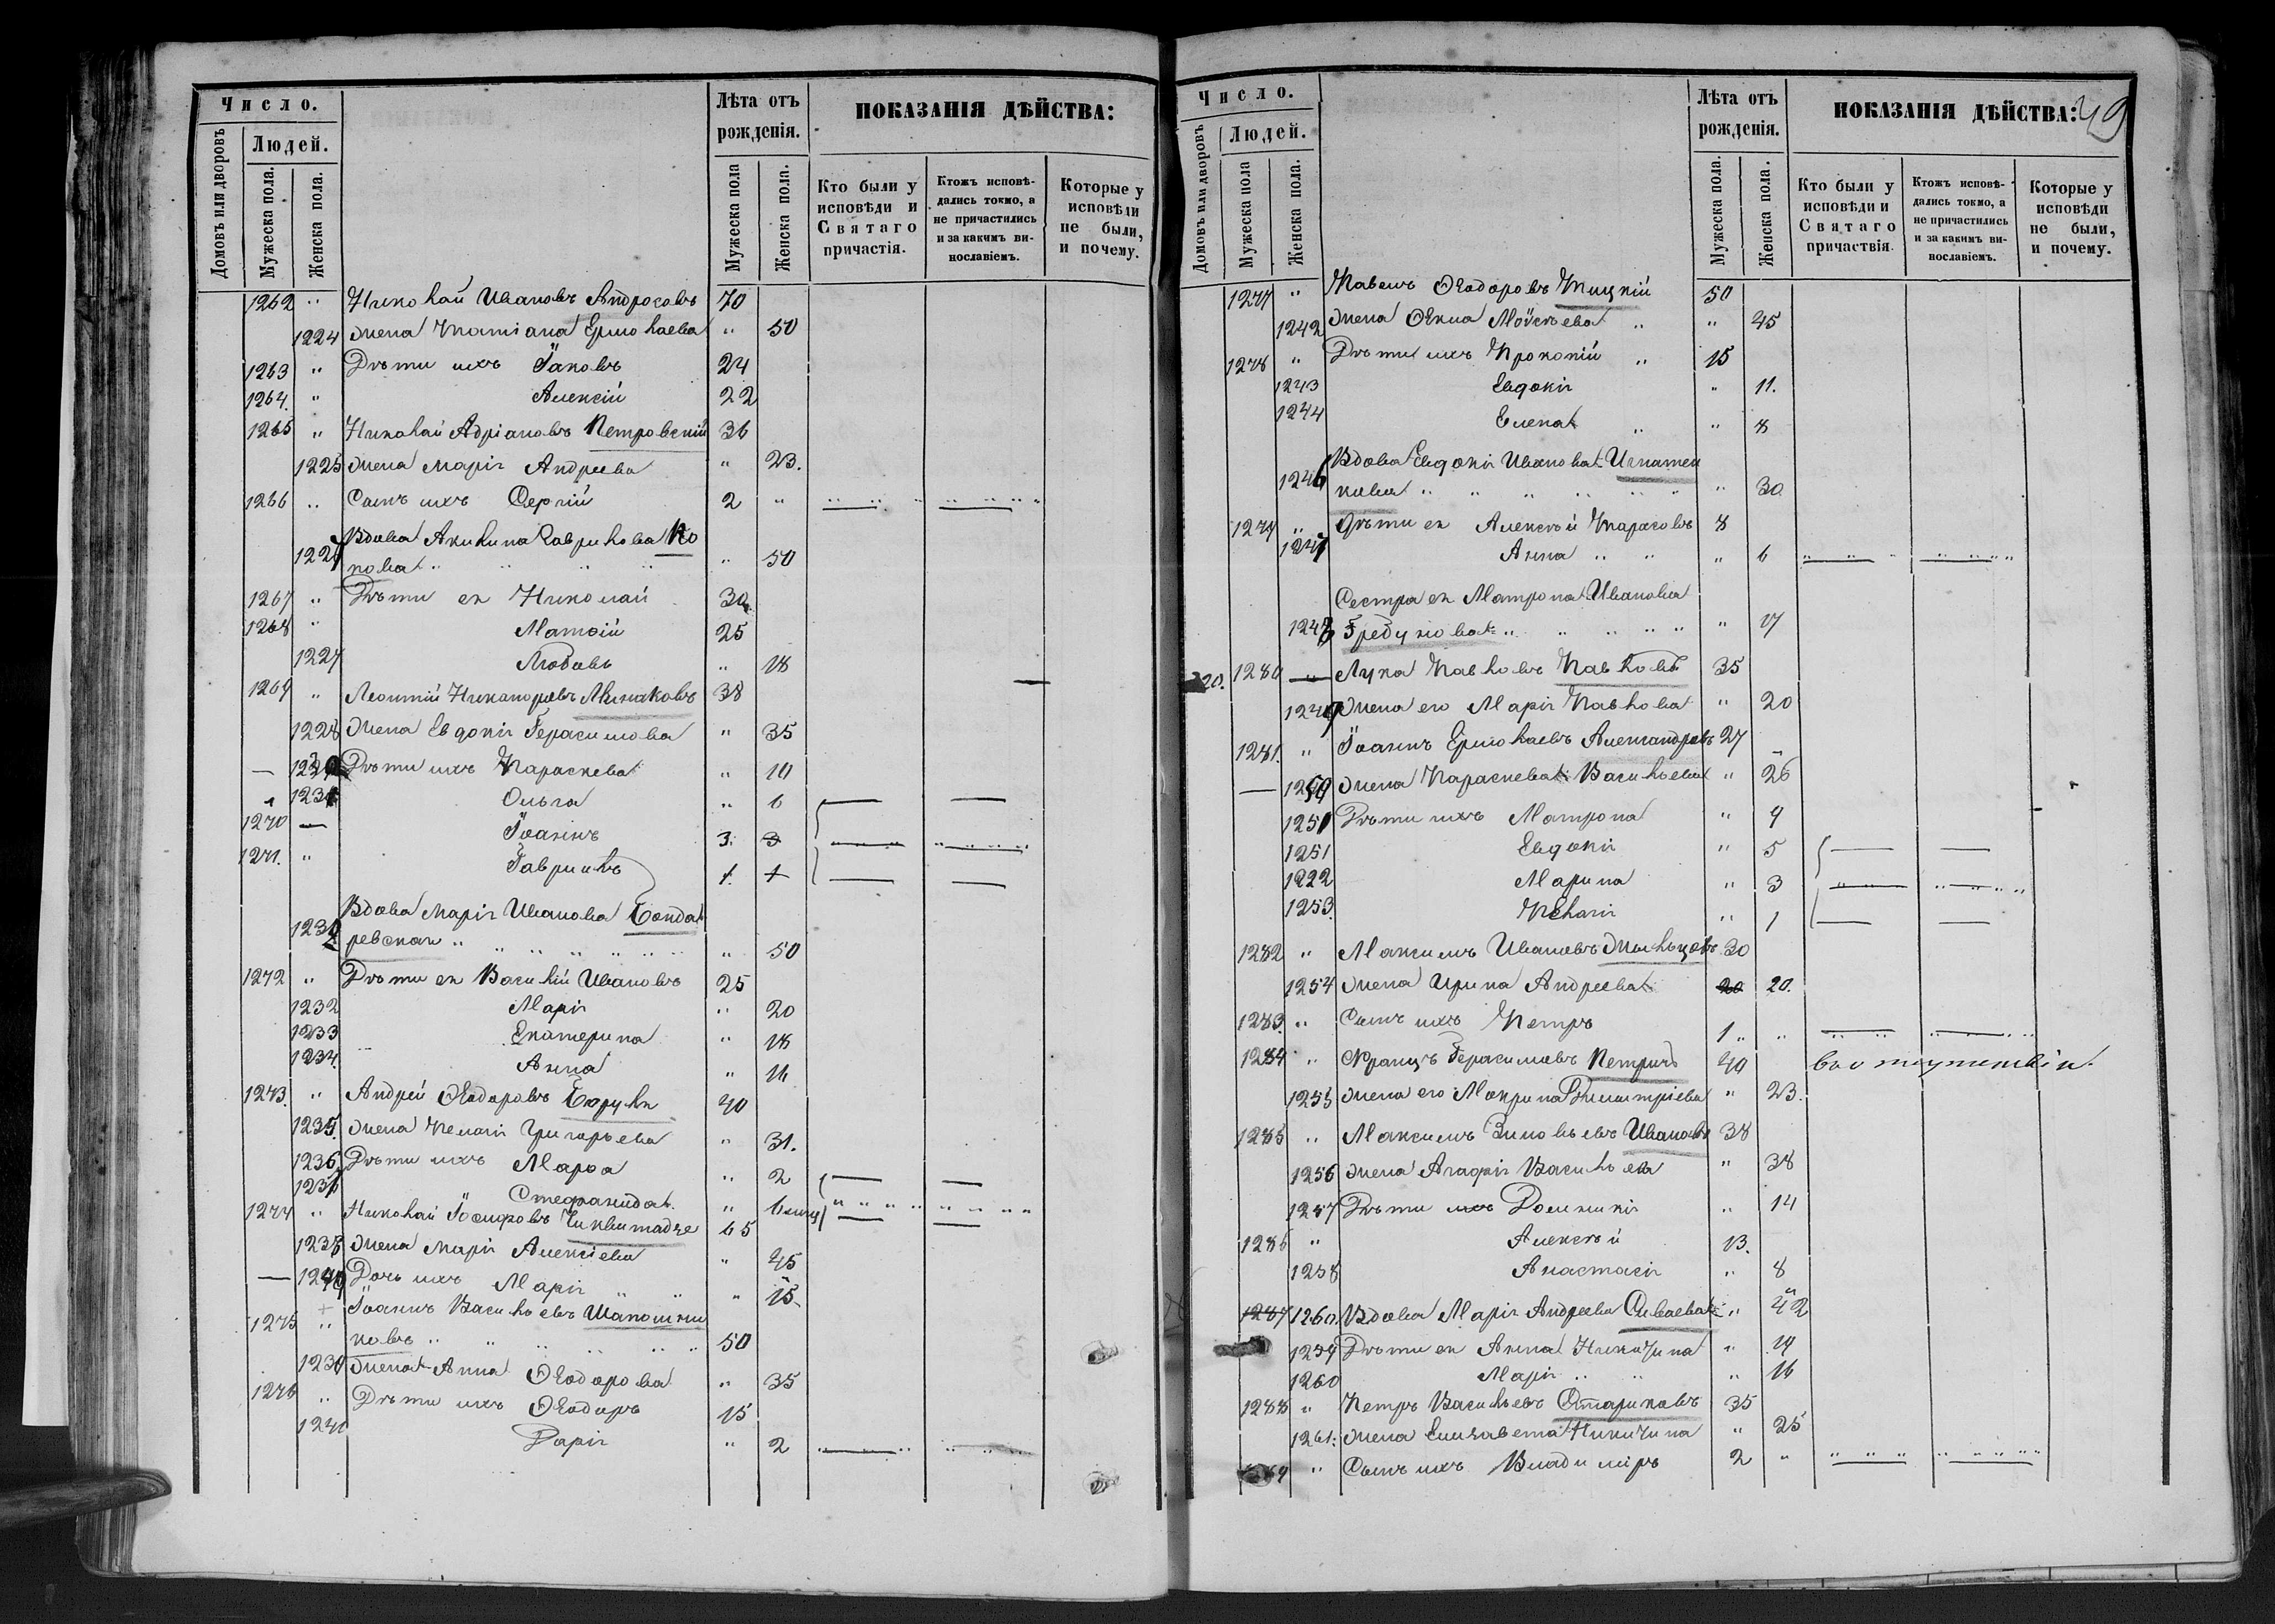 Число.
Людей.
Домовъ или дворовъ
Мужеска пола.
Женска пола.
Лѣта отъ рожденія.
Мужеска пола
Женска пола.
ПОКАЗАНІЯ ДѢЙСТВА:
Кто были у исповѣди и Святаго причастія.
Ктожъ исповѣ-
дались токмо, а
не причастились
и за какимъ ви-
нословіемъ.
Которые у
исповѣди
не были,
и почему.
1262 " Николай Ивановъ Андросовъ 70
1224 Жена Татіана Ермолаева " 50
1263 " Дѣти ихъ Іаковъ 24
1264. " Алексій 22
1265 " Николай Адріановъ Петровскій 36
1225 Жена Марія Андреева " 23.
1266 " Сынъ ихъ Сергій 2 "
Вдова Акилина Гаврилова По
пова " " 50
1267 " Дѣти ея Николай 30
1268 " Матѳій 25
1227 Любовь " 18
1269 " Леонтій Никаноровъ Минаковъ 38
1228 Жена Евдокія Герасимова " 35
Дѣти ихъ Параскева " 10
Ольга " 6
1270 — Іоаннъ 3.
1271. " Гавріилъ 1.
Вдова Марія Иванова Бонда
ревская " " 50
1272 " Дѣти ея Василій Ивановъ 25
1232 Марія " 20
1233 Екатерина " 18
1234. Анна " 11
1273. " Андрей Ѳеодоровъ 40
1235. Жена Пелагія Григорьева " 31.
1236 Дѣти ихъ Марѳа " 2
Стефанида "
1274 " Николай Іосифовъ 65
1238 Жена Марія Алексіева " 45
Дочь ихъ Марія " 15
1275 " Іоаннъ Васильевъ Шапошни
ковъ " 50
1239 Жена Анна Ѳеодорова " 35
1276 " Дѣти ихъ Ѳеодоръ 15
Дарія " 2
49
Число.
Людей.
Домовъ или дворовъ
Мужеска пола
Женска пола.
Лѣта отъ рожденія.
Мужеска пола.
Женска пола.
ПОКАЗАНІЯ ДѢЙСТВА:
Кто были у исповѣди и Святаго причаствія
Ктожъ исповѣ-
дались токмо, а
не причастились
и за какимъ ви-
нословіемъ.
Которые у
исповѣди
не были,
и почему.
1277 " Павелъ Ѳеодоровъ 50
1242 Жена Ѳекла Моѵсеева " 45
1278 " Дѣти ихъ Прокопій " 15
1243 Евдокія " 11.
1244 Елена " 8
1246 Вдова Евдокія Иванова Игнатен
кова " " 30
1279 " Дѣти ея Алексѣй Тарасовъ 8
1247 Анна " " 6
Сестра ея Матрона Иванова
1248 " " 17
20. 1280 Лука Павловъ Павловъ 35
1249 Жена его Марія Павлова " 20
1281. " Іоаннъ Ермолаевъ Александровъ 27
Жена Параскева Васильева " 26
1251 Дѣти ихъ Матрона " 9
1251 Евдокія " 5
1222 Марина " 3
1253. Пелагія " 1
1282 " Максимъ Ивановъ 30
1254 Жена Ирина Андреева 20 20.
1283. " Сынъ ихъ Петръ 1 "
1284 " Францъ Герасимовъ Петричъ 40 въ отсутствіи
1255 Жена его Макрина Дмитріева " 23.
1285 " Максимъ Зиновьевъ Ивановъ 38
1256 Жена Агафія Васильева " 38
1257 Дѣти ихъ Домникія " 14
1286 " Алексѣй 13.
1258 Анастасія " 8
1287 1260 Вдова Марія Андреева Сиваева " 42
1259 Дѣти ея Анна Никитина " 19
1260 Марія " 16
1288 " Петръ Васильевъ Стариковъ 35
1261. Жена Елизавета Никитина " 25
" Сынъ ихъ Владиміръ 2 "